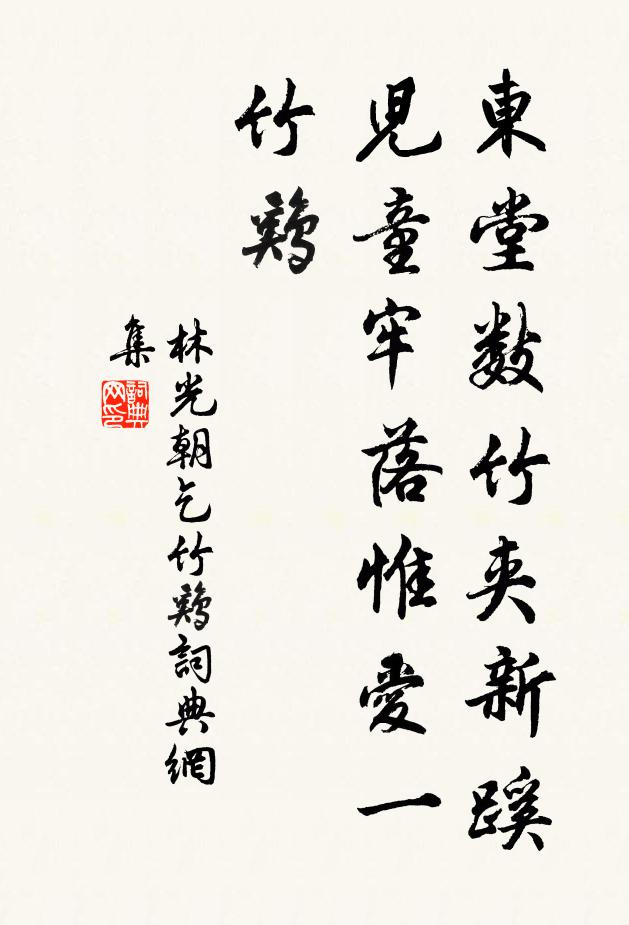 東堂数竹夹新蹊
児童牢落惟愛一
竹鷄
林光朝乞竹鷄詞典網
集
詞典
网印